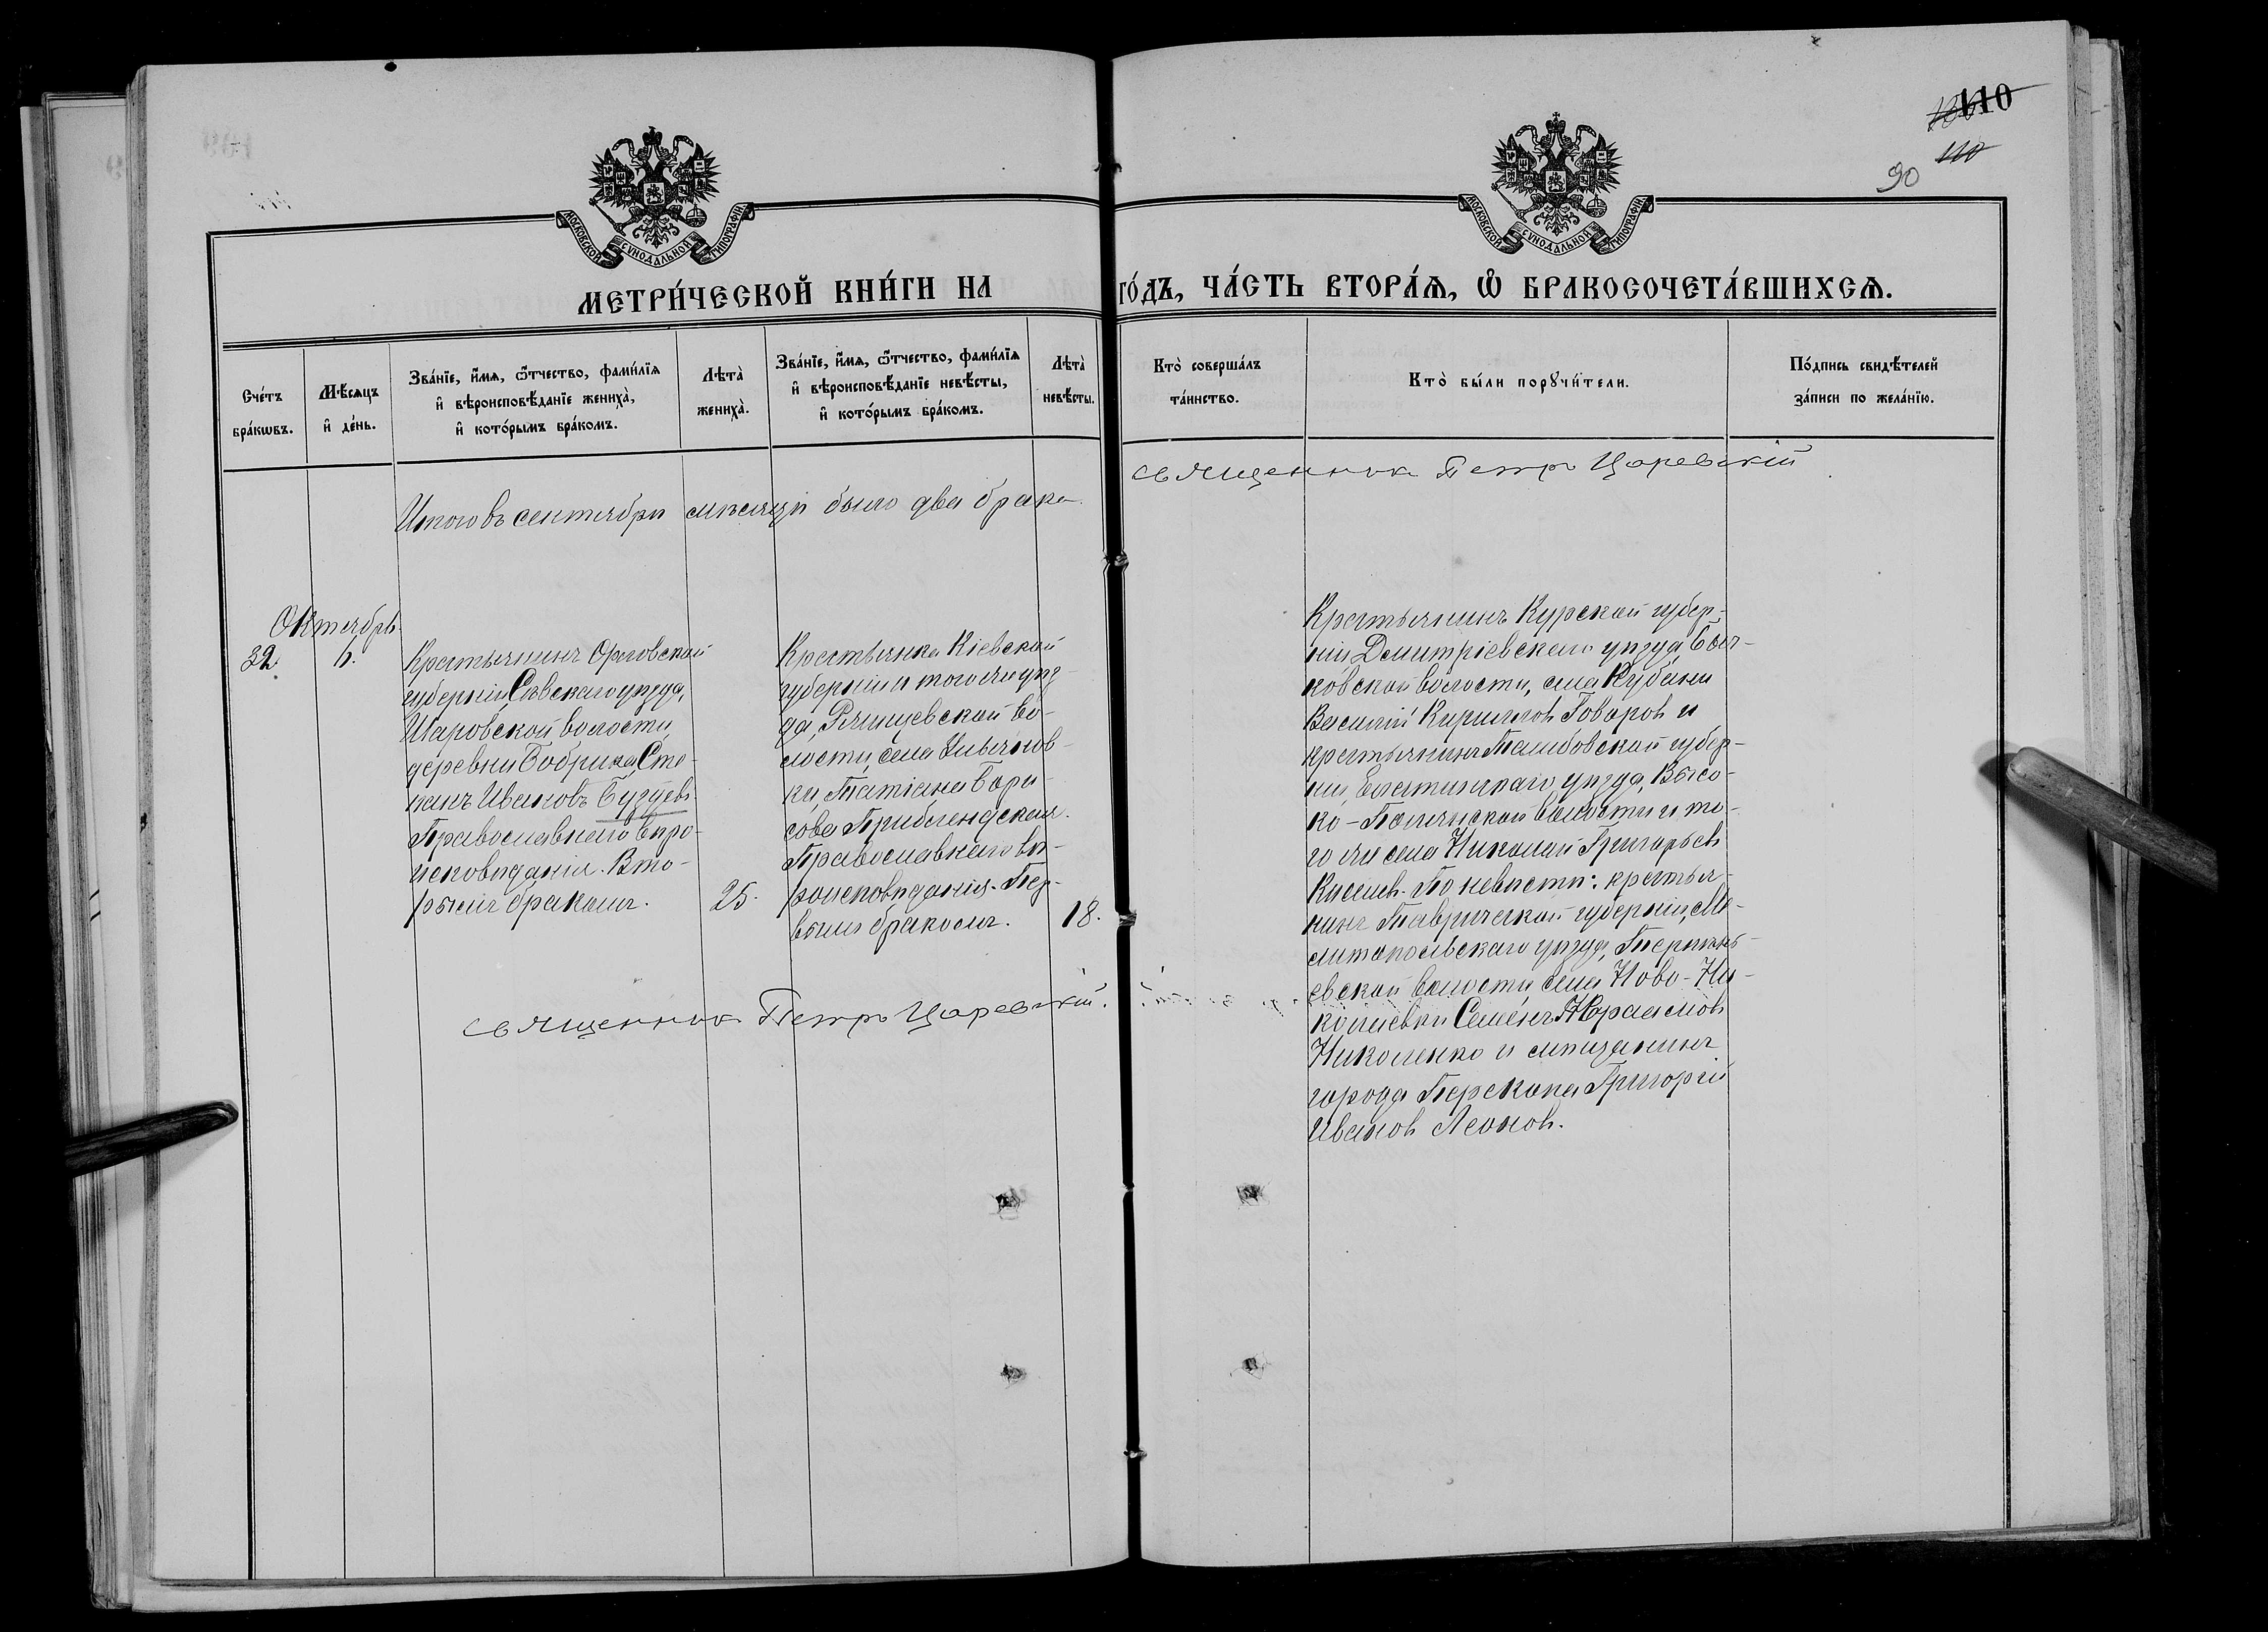 110
110
90
МОСКОВСКОЙ СУНОДАЛЬНОЙ ТИПОГРАФІИ.
МОСКОВСКОЙ СУНОДАЛЬНОЙ ТИПОГРАФІИ.
МЕТРИ́ЧЕСКОЙ КНИ́ГИ НА ГО́ДЪ, ЧА́СТЬ ВТОРА́Я, Ѿ БРАКОСОЧЕТА́ВШИХСЯ.
Сче́тъ бра́кѡвъ.
Мѣ́сяцъ и҆ де́нь.
Зва́нїе, и҆́мя, ѻ҆́тчество, фами́лїя
и҆ вѣроисповѣ́данїе жениха̀,
и҆ кото́рымъ бра́комъ.
Лѣта̀ жениха̀.
Зва́нїе, и҆́мя, ѻ҆́тчество, фами́лїя
и҆ вѣроисповѣ́данїе невѣ́сты,
и҆ кото́рымъ бра́комъ.
Лѣта̀ невѣ́сты.
Кто̀ соверша́лъ та́инство.
Кто̀ бы́ли порꙋчи́тели.
По́дпись свидѣ́телей за́писи по жела́нїю.
Итого въ сентябрѣ мѣсяцѣ было два брака
священникъ Петръ Царевскій
Октябрь.
32. 6.
Крестьянинъ Орловской
губерніи, Сѣвскаго уѣзда,
Шаровской волости,
деревни Бобрика, Сте-
панъ Ивановъ Бузуевъ
Православнаго вѣро-
исповѣданія. Вто-
рымъ бракомъ.
25.
Крестьянка Кіевской
губерніи и того же уѣз-
да, Ржищевской во-
лости, села Ульянов-
ки, Татіана Бори-
сова Приблендская.
Православнаго вѣ-
роисповѣданія. Пер-
вымъ бракомъ.
18.
священникъ Петръ Царевскій.
Крестьянинъ Курской губер-
ніи, Дмитріевскаго уѣзда,
ковской волости, села Кубани
Василій Кирилловъ Говоровъ и
крестьянинъ Тамбовской губер-
ніи, Елатомскаго уѣзда, Высо-
ко-Полянской волости и то-
го же села Николай Григорьевъ
Киселевъ. По невѣстѣ: крестья-
нинъ Таврической губерніи, Ме-
литопольскаго уѣзда,
евской волости, села Ново-Ни-
колаевки Семёнъ
Николенко и мѣщанинъ
города Перекопа Григорій
Ивановъ Леоновъ.